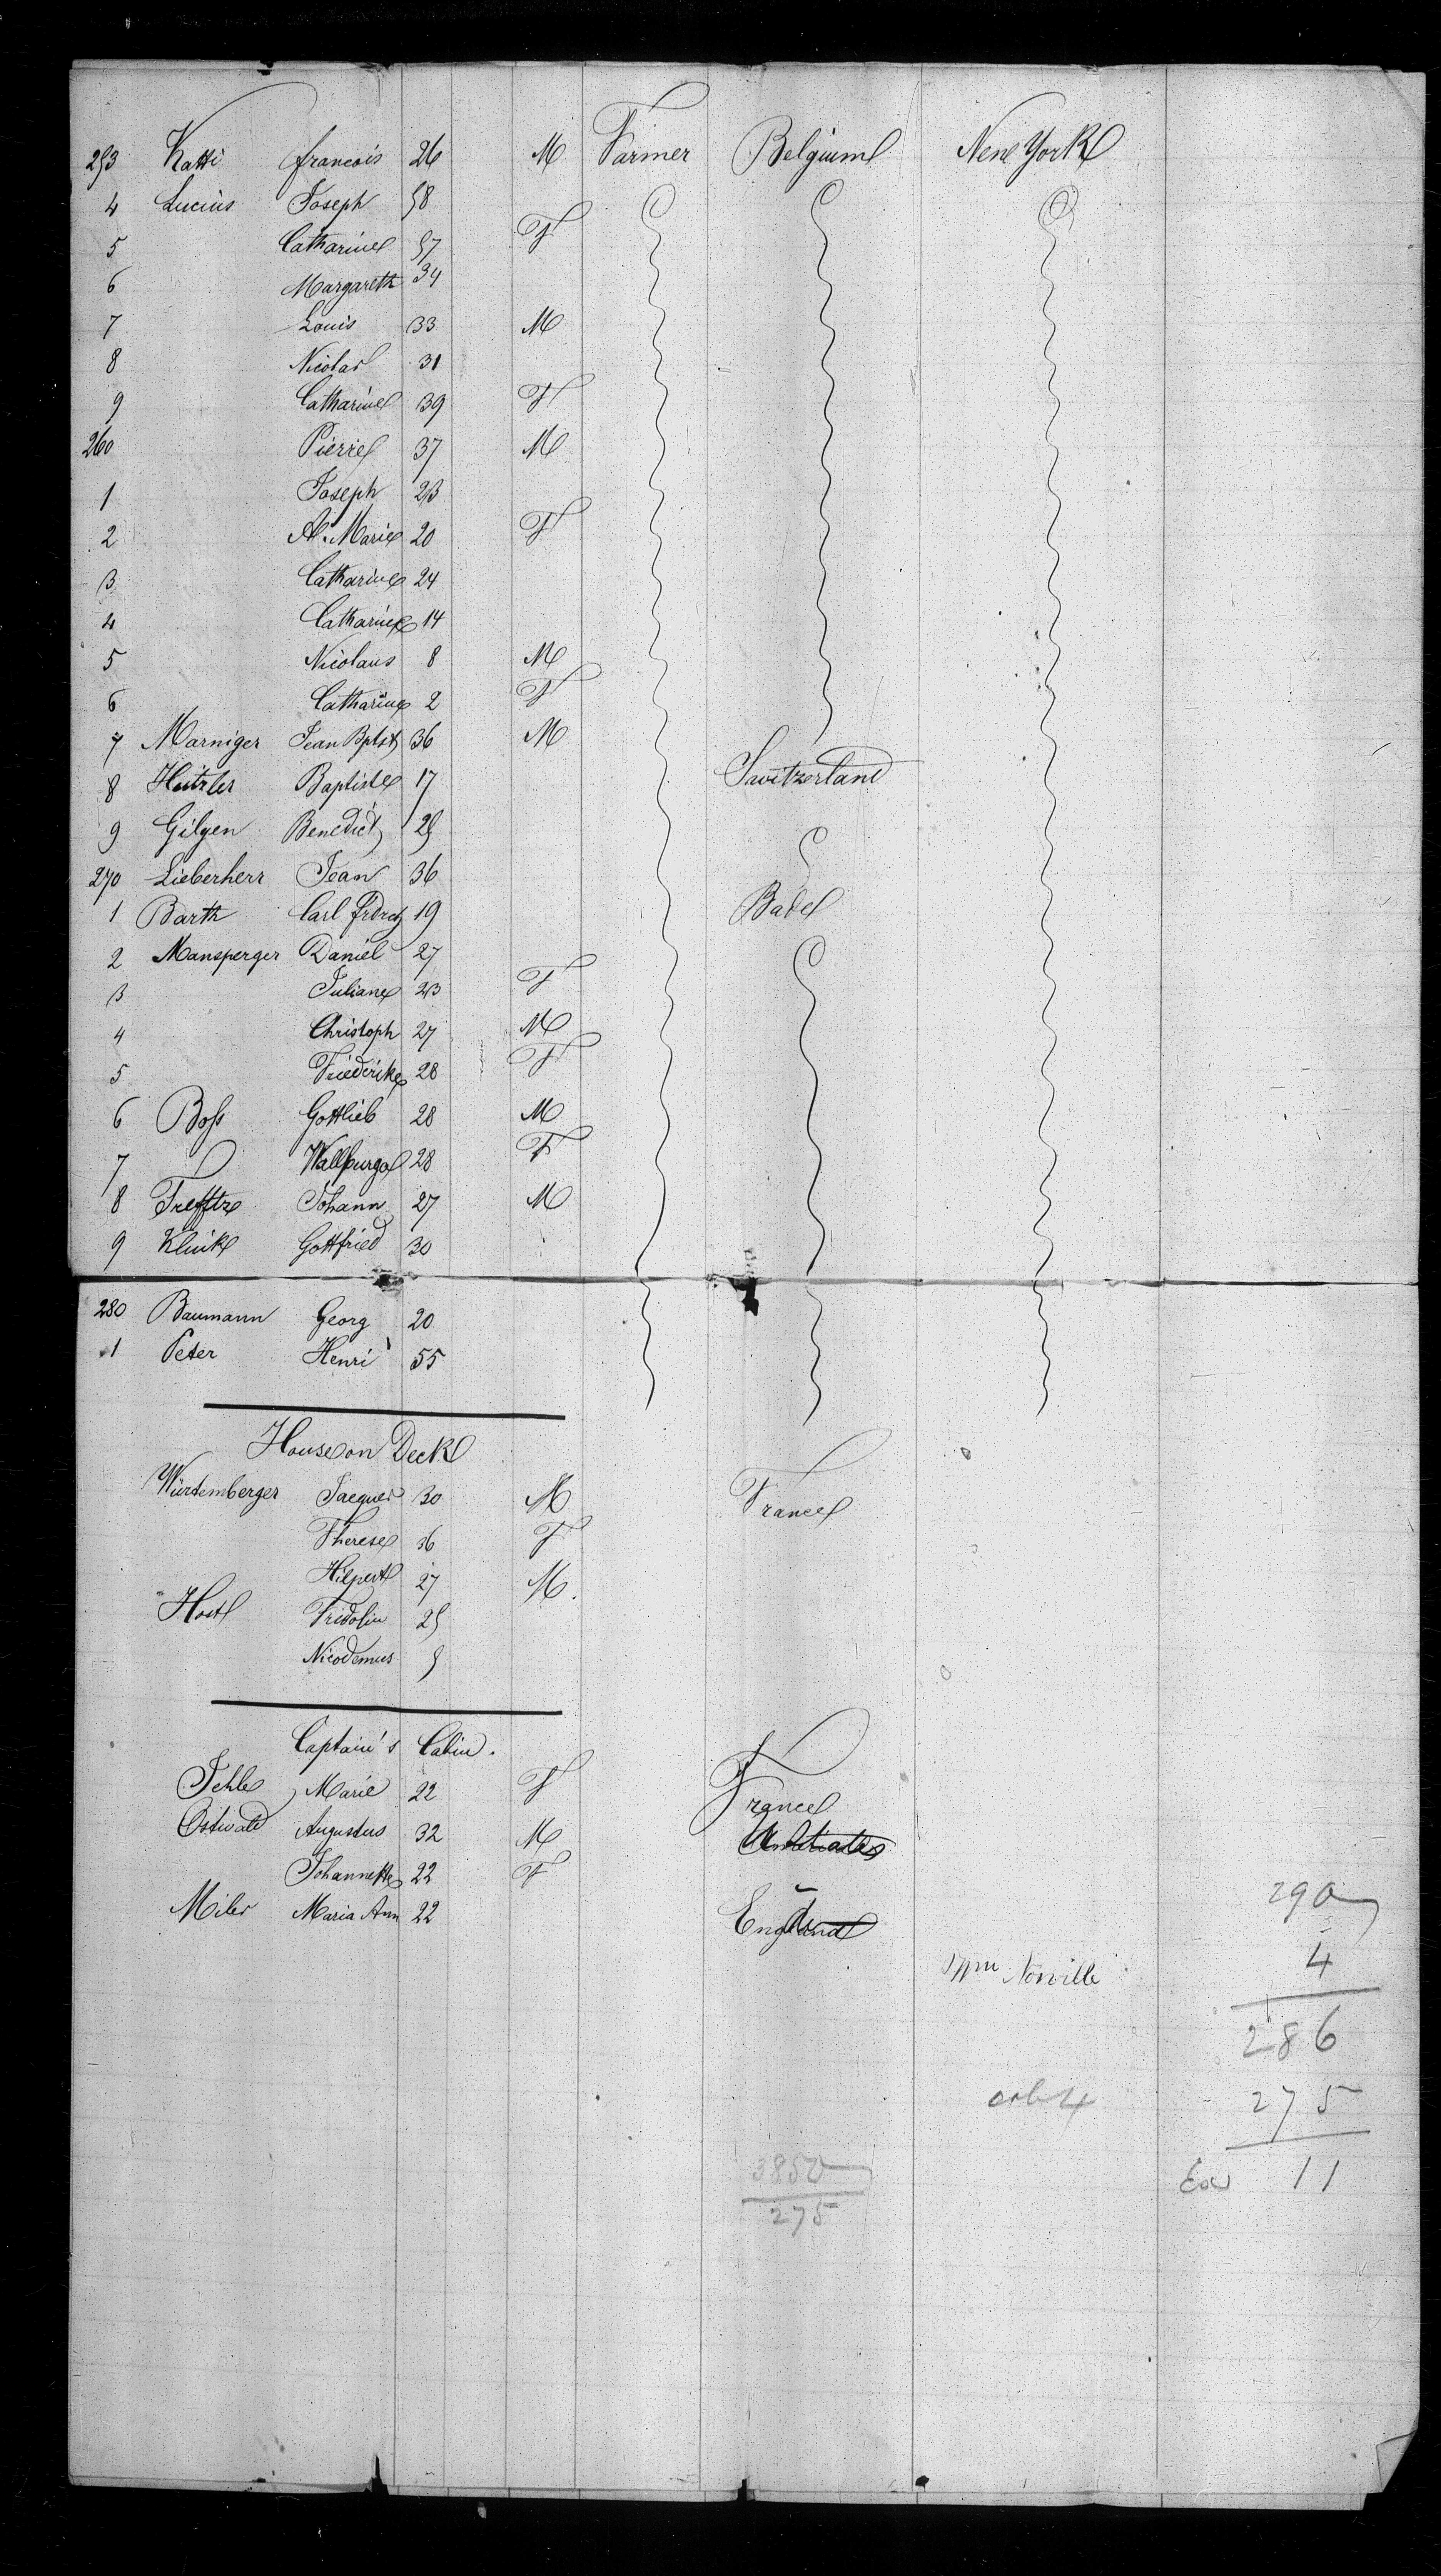 253 Katti francois 26 M Farmer Belgium New York
4 Lucius Joseph 58
5 Catharine 57 F
6 Margareth 34
7 Louis 33 M
8 Nicolas 31
9 Catharine 39 F
260 Pierre 37 M
1 Joseph 23
2 A. Marie 20 F
3 Catharine 24
4 Catharine 14
5 Nicolaus 8 M
6 Catharine 2 F
7 Marniger Jean Bptst 36 M
8 Hutzler Baptiste 17 Switzerland
9 Gilgen Benedict 25
270 Lieberherr Jean 36
1 Barth Carl Frdrch 19 Bade
2 Mansperger Daniel 27
3 Juliane 23 F
4 Christoph 27 M
5 Friederike 28 F
6 Boss Gottlieb 28 M
7 Wallpurga 28 F
8 Trefftz Johann 27 M
9 Klink Gottfried 30
280 Baumann Georg 20
1 Peter Henri 55
House on Deck
Würtemberger Jacques 30 M France
Therese 36 F
Hilpert 27 M.
Host Fridolin 25
Nicodemus 5
Captain's Cabin.
Jehle Marie 22 F France
Ostwald Augustus 32 M
Johannette 22 F
Miler Maria Ann 22 England
290
4
Norville
286
275
11
3850
275